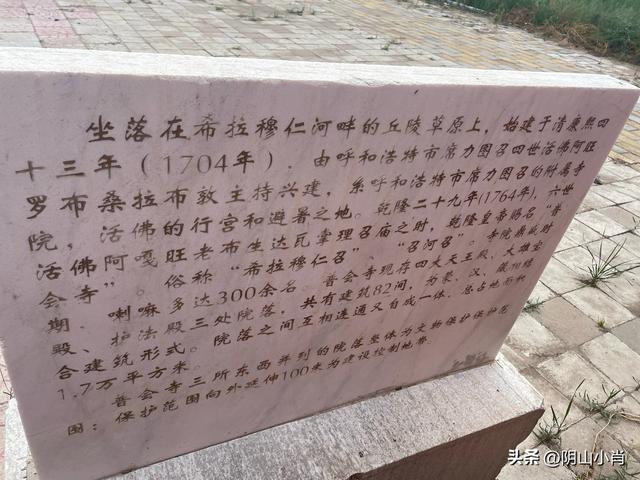 坐落在希拉穆仁河畔的丘陵草原上，始建于清康熙四
十三年（1704年），由呼和浩特市席力图召四世活佛阿旺
罗布桑拉布敦主持兴建，系呼和浩特市席力图召的附属寺
院，活佛的行宫和避暑之地。乾隆二十九年(1764年)，六世
活佛阿嘎旺老布生达瓦掌理召庙之时，乾隆皇帝赐名“普
会寺”。俗称“希拉穆仁召”、“召河召”。寺院鼎盛时
期，喇嘛多达300余名。普会寺现存四大天王殿、大雄宝
殿、护法殿三处院落，共有建筑82间，为蒙、汉、藏相结
合建筑形式。院落之间互相连通又自成一体，总占地面积
1.7万平方米。
普会寺三所东西并列的院落整体为文物保护保护范
围；保护范围向外延伸100米为建设控制地带。
头条 @阴山小肖